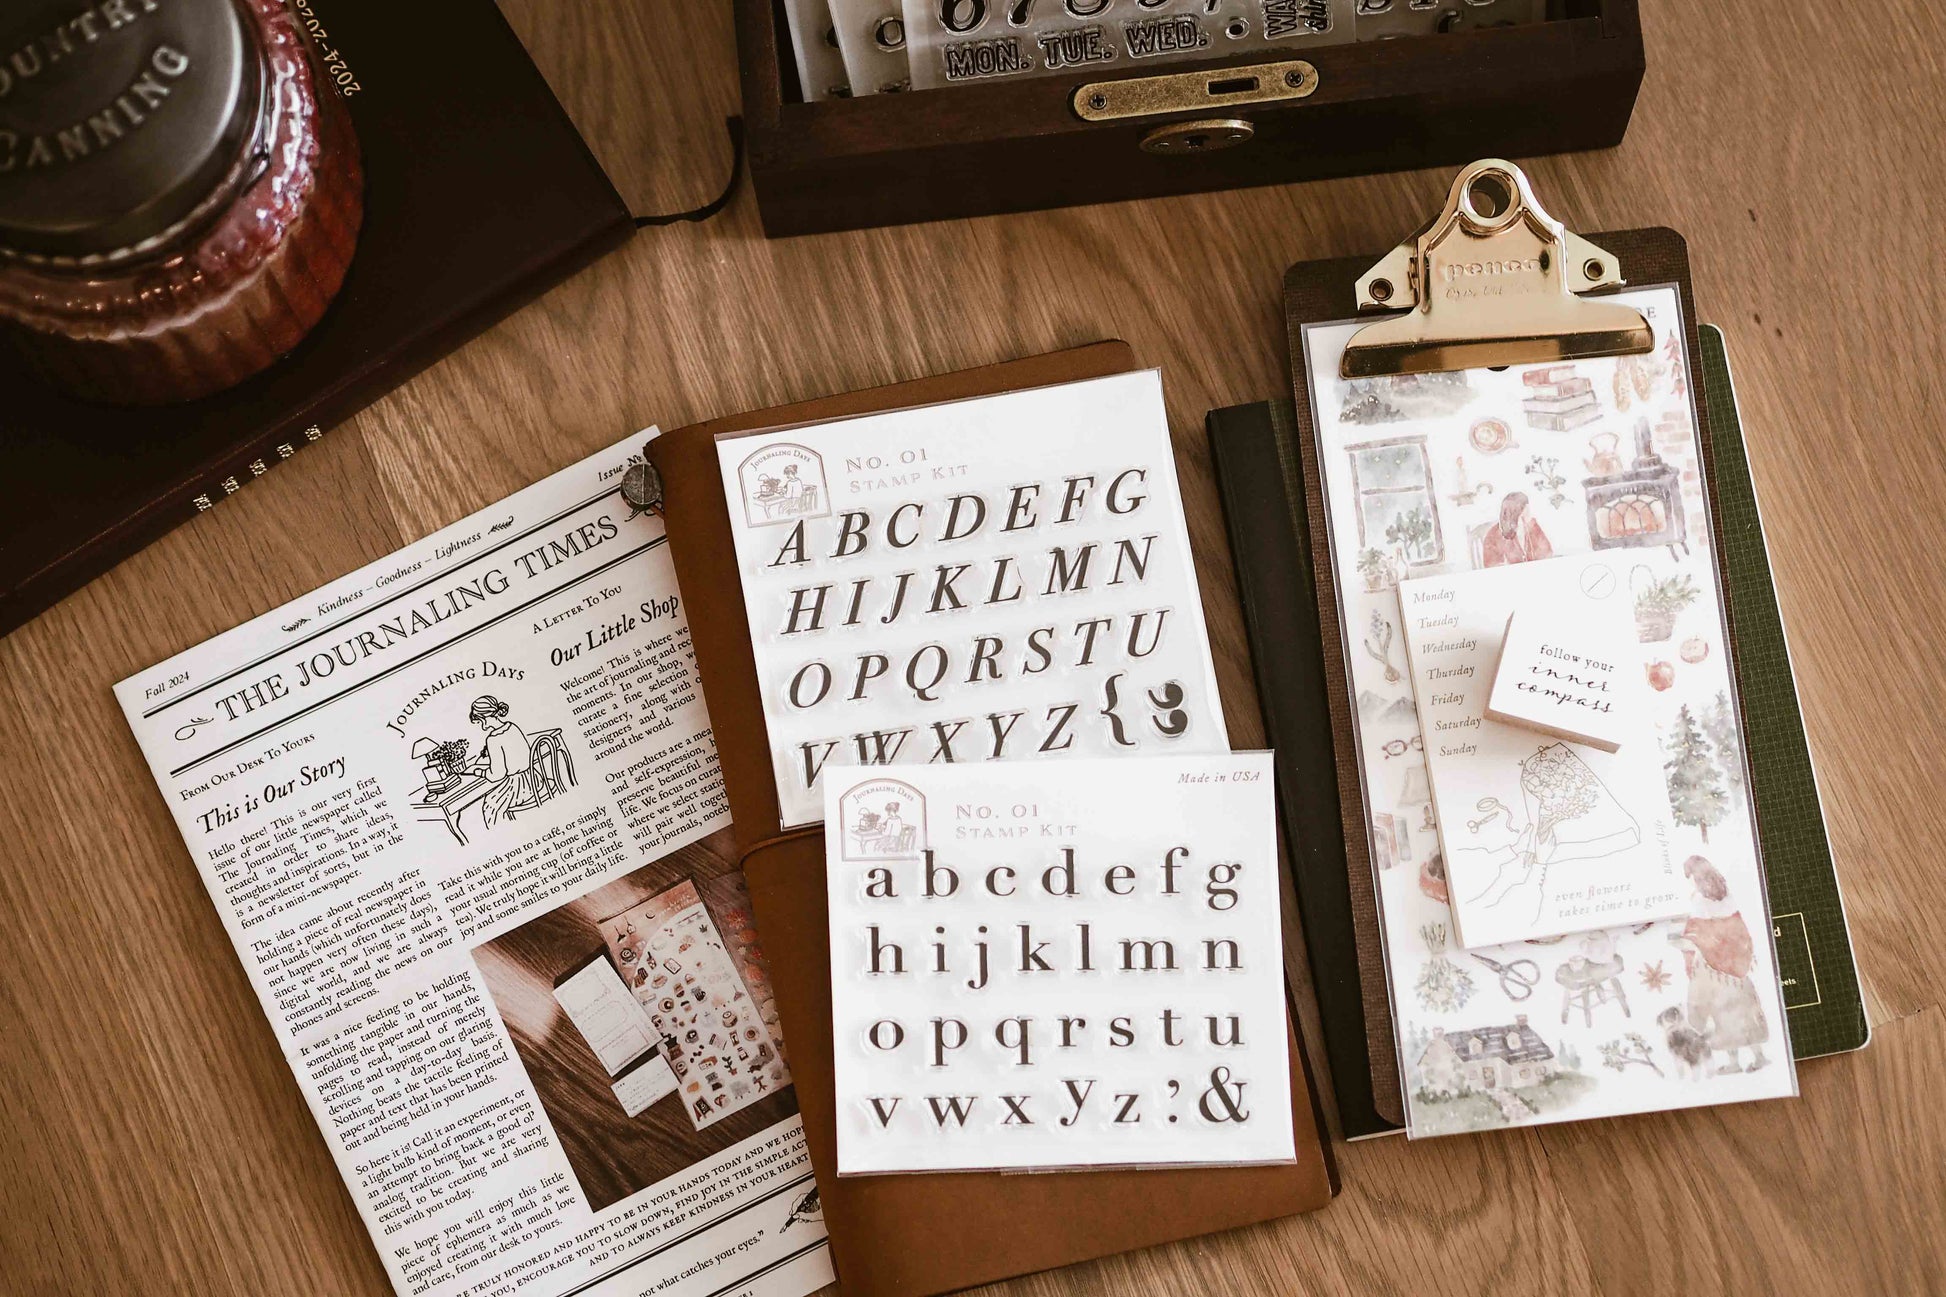 COUNTRY
CANNING
2024-2028
MON. TUE. WED.
Issue No
Kindness – Goodness – Lightness
Fall 2024
THE JOURNALING TIMES
From Our Desk To Yours
This is Our Story
Hello there! This is our very first
issue of our little newspaper called
The Journaling Times, which we
created in order to share ideas,
thoughts and inspirations. In a way, it
is a newsletter of sorts, but in the
form of a mini-newspaper.
The idea came about recently after
holding a piece of real newspaper in
our hands (which unfortunately does
not happen very often these days),
since we are now living in such a
digital world, and we are always
constantly reading the news on our
phones and screens.
It was a nice feeling to be holding
something tangible in our hands,
unfolding the paper and turning the
pages to read, instead of merely
scrolling and tapping on our glaring
devices on a day-to-day basis.
Nothing beats the tactile feeling of
paper and text that has been printed
out and being held in your hands.
So here it is! Call it an experiment, or
a light bulb kind of moment, or even
an attempt to bring back a good ol'
analog tradition. But we are very
excited to be creating and sharing
this with you today.
We hope you will enjoy this little
piece of ephemera as much as we
enjoyed creating it with much love
and care, from our desk to yours.
Journaling Days
Take this with you to a café, or simply
read it while you are at home having
your usual morning cup (of coffee or
tea). We truly hope it will bring a little
joy and some smiles to your daily life.
A Letter To You
Our Little Shop
Welcome! This is where we
the art of journaling and rec
moments. In our shop, w
curate a fine selection
stationery, along with
designers and various
around the world.
Our products are a mea
and self-expression,
preserve beautiful
life. We focus on
where we select
will pair well
your journals,
TRULY HONORED AND HAPPY TO BE IN YOUR HANDS TODAY AND WE HOP
YOU, ENCOURAGE YOU TO SLOW DOWN, FIND JOY IN THE SIMPLE
AND TO ALWAYS KEEP KINDNESS IN YOUR HEART
not what catches your eyes."
Journaling Days
No. 01
Stamp Kit
A B C D E F G
H I J K L M N
O P Q R S T U
V W X Y Z {
Made in USA
Journaling Days
No. 01
Stamp Kit
a b c d e f g
h i j k l m n
o p q r s t u
v w x y z ; &
penco
Monday
Tuesday
Wednesday
Thursday
Friday
Saturday
Sunday
follow your
inner
compass
even flowers
takes time to grow.